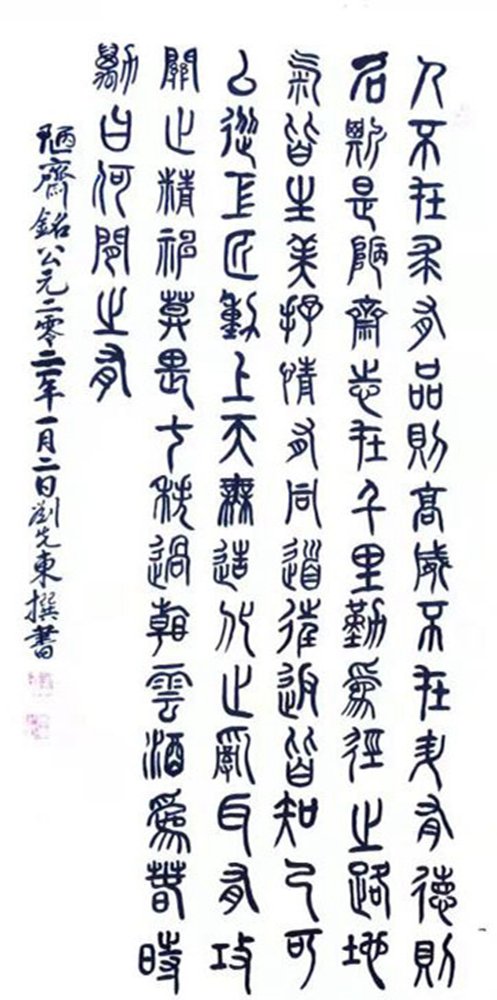 人不在有品則高歲不在有德則
名斯是陋齋志在千里勤為徑之路地
氣皆生美抒情有同道往返皆知己可
以從匠動上天無造化之亂耳有攻
關之精神莫畏七秩過朝雲酒為時
勵白何聞之有
陋齋銘公元二零二二年一月二日劉先東撰書